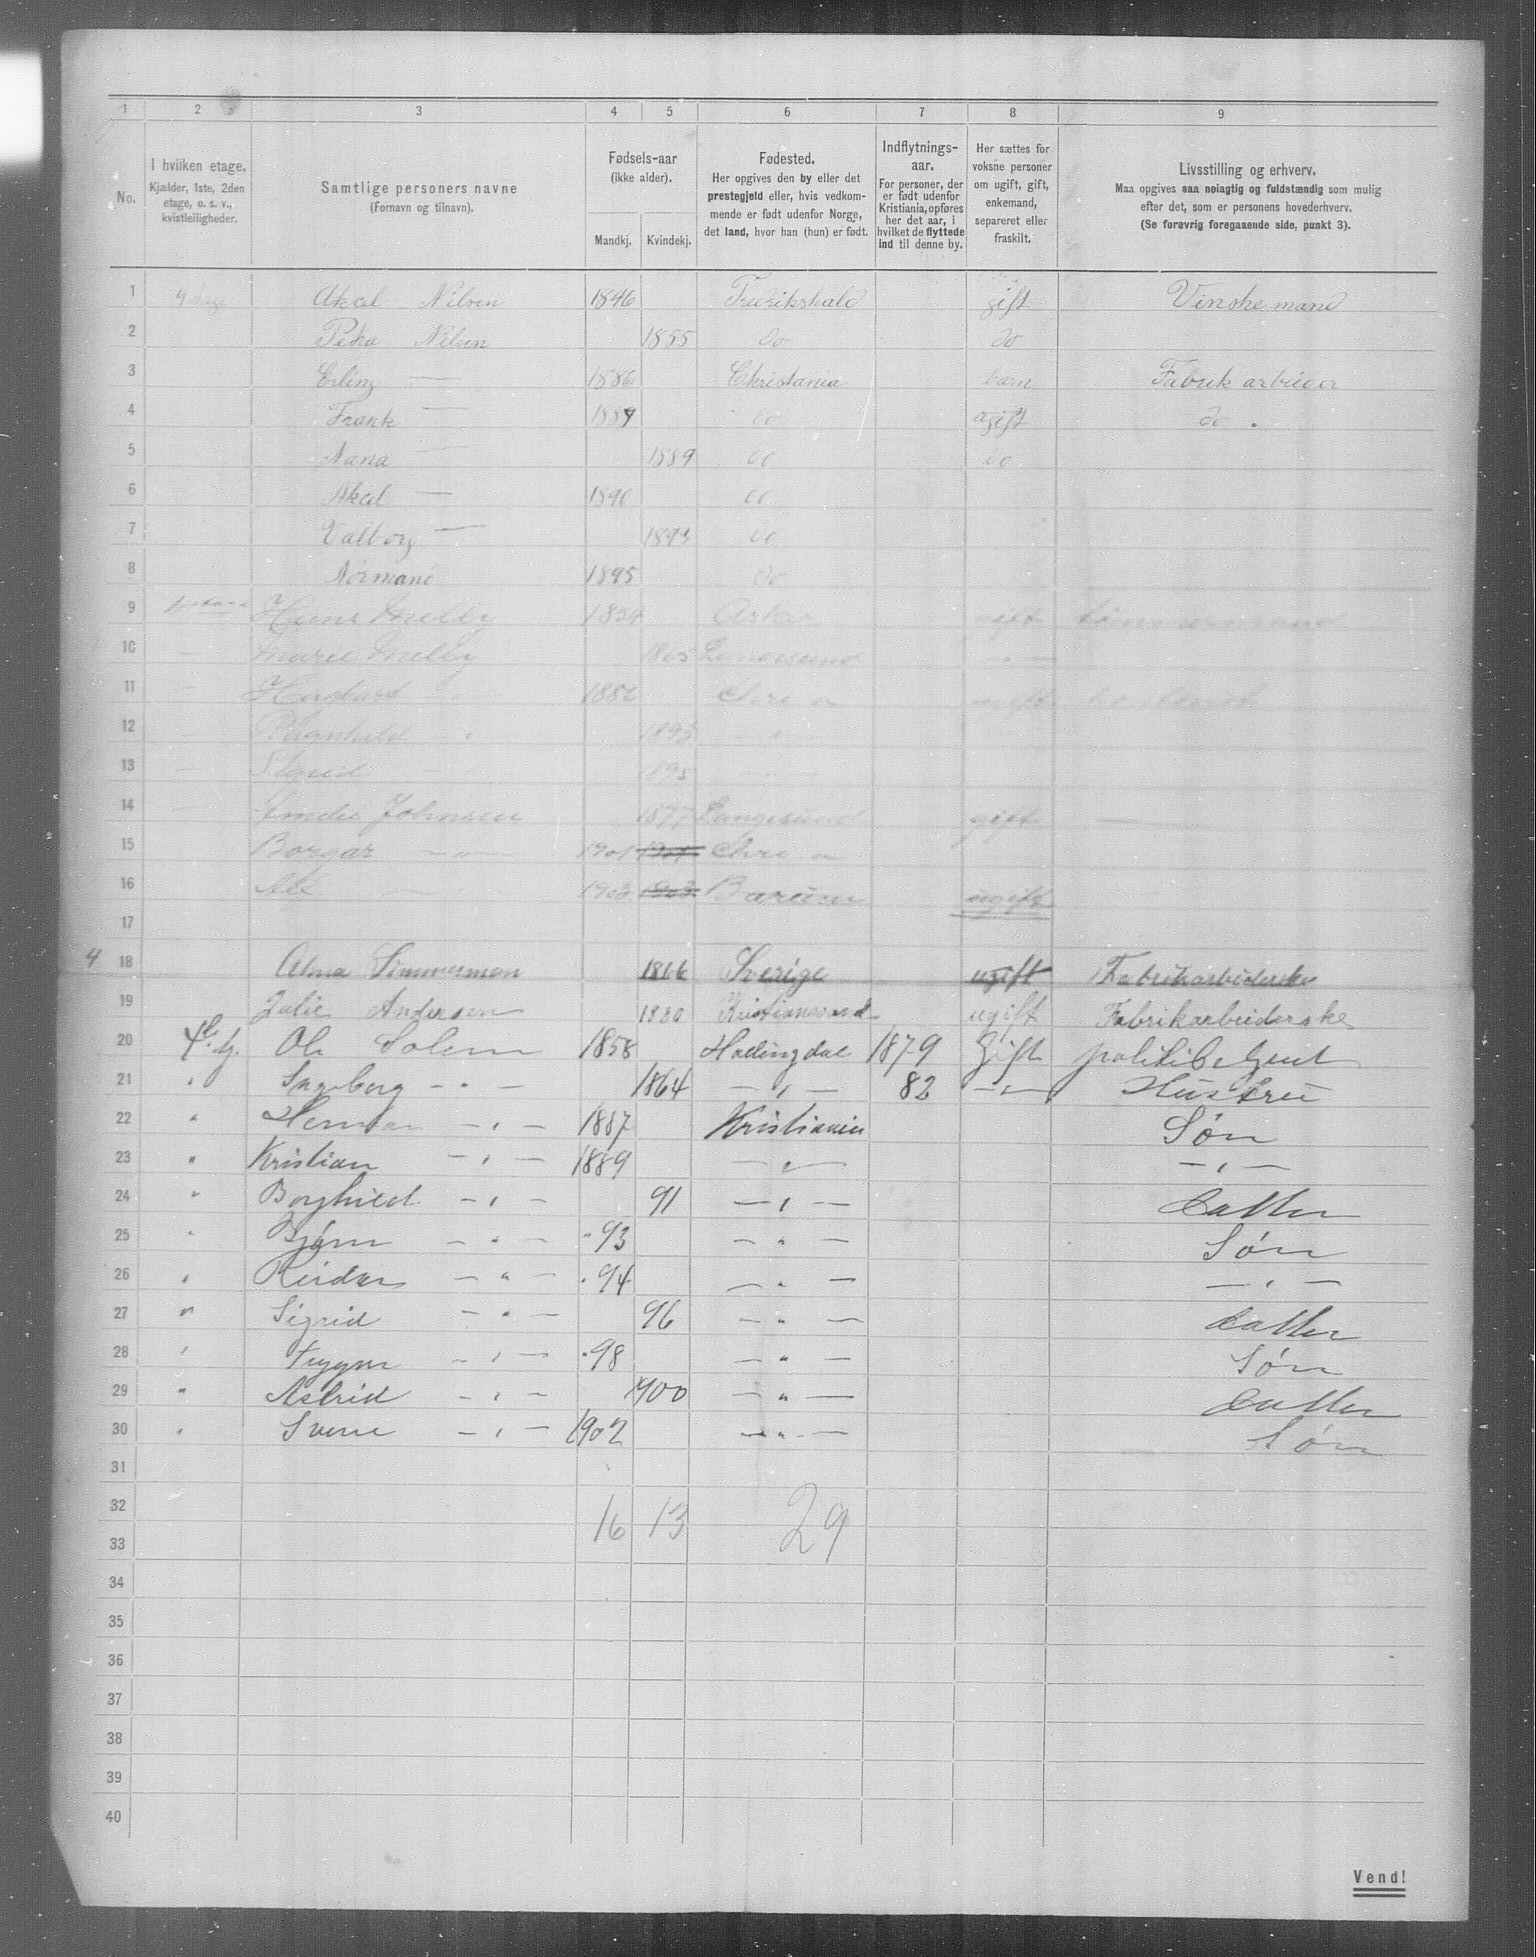 1 2 3 4 5 6 7 8 9
No.
I hvilken etage.
Kjælder, 1ste, 2den
etage, o. s. v.,
kvistleiligheder.
Samtlige personers navne
(Fornavn og tilnavn).
Fødsels-aar
(ikke alder).
Mandkj. Kvindekj.
Fødested.
Her opgives den by eller det
prestegjeld eller, hvis vedkom-
mende er født udenfor Norge,
det land, hvor han (hun) er født.
Indflytnings-
aar.
For personer, der
er født udenfor
Kristiania, opføres
her det aar, i
hvilket de flyttede
ind til denne by.
Her sættes for
voksne personer
om ugift, gift,
enkemand,
separeret eller
fraskilt.
Livsstilling og erhverv.
Maa opgives saa nøiagtig og fuldstændig som mulig
efter det, som er personens hovederhverv.
(Se forøvrig foregaaende side, punkt 3).
1 4 Axel Nilsen 1846 Fredrikshald gift
2 Nilsen 1855 do do
3 Erling — 1886 Christania barn Fabrik arbeider
4 Frank — ugift do .
5 Nana — 1889 do do
6 Axel — 1890 do
7 Valborg — 1893 do
8 Normand 1895 do
9 Hans Melby Asker gift tømmermand
10 — Marie Melby
11 — 1882 Chri a
12 — Ragnhild — " 1893 — " —
13 — Sigrid — " 1895 —
14 — Johnsen 1877 Langesund gift —
15 Borgar — " — 1901 1901 Chri a
16 Alf — 1903 1903 Bærum ugift
17
4 18 Alma Simmerman 1866 Sverige ugift Fabrikarbeiderske
19 Julie Andersen 1880 Kristianssand ugift Fabrikarbeiderske
20 Ole Solem 1858 Hallingdal 1879 Gift politibetjent
21 " Ingeborg — " — 1864 — " — 82 — " — Hustru
22 " Herman — " — 1887 Kristiania Søn
23 " Kristian — " — 1889 — " — — " —
24 " Borghild — " — 91 — " — Datter
25 " Bjørn — " — " 93 — " — Søn
26 " Reidar — " — " 94 — " — — " —
27 " Sigrid — " — 96 — " — Datter
28 " Trygve — " — " 98 — " — Søn
29 " Astrid — " — 1900 — " — Datter
30 " Sverre — " — 1902 — " — Søn
31
32 16 13 29
33
34
35
36
37
38
39
40
Vend!